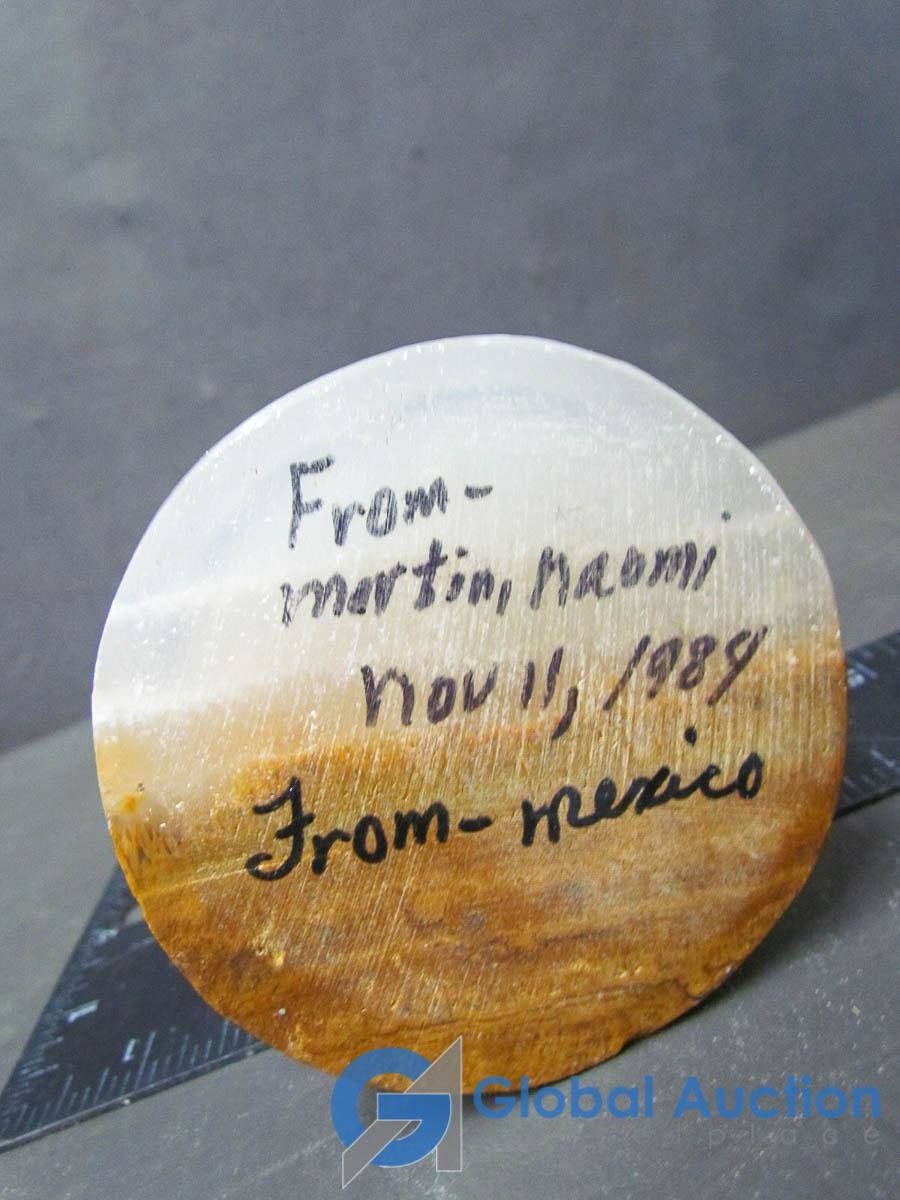 From-
martin, naomi
nov 11, 1984
From- mexico
Global Auction
place